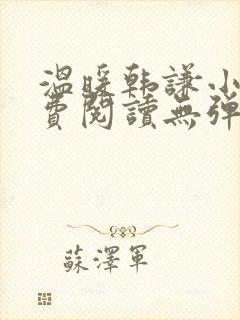 溫暖韩謙小
費閱讀無弹
蘇澤軍